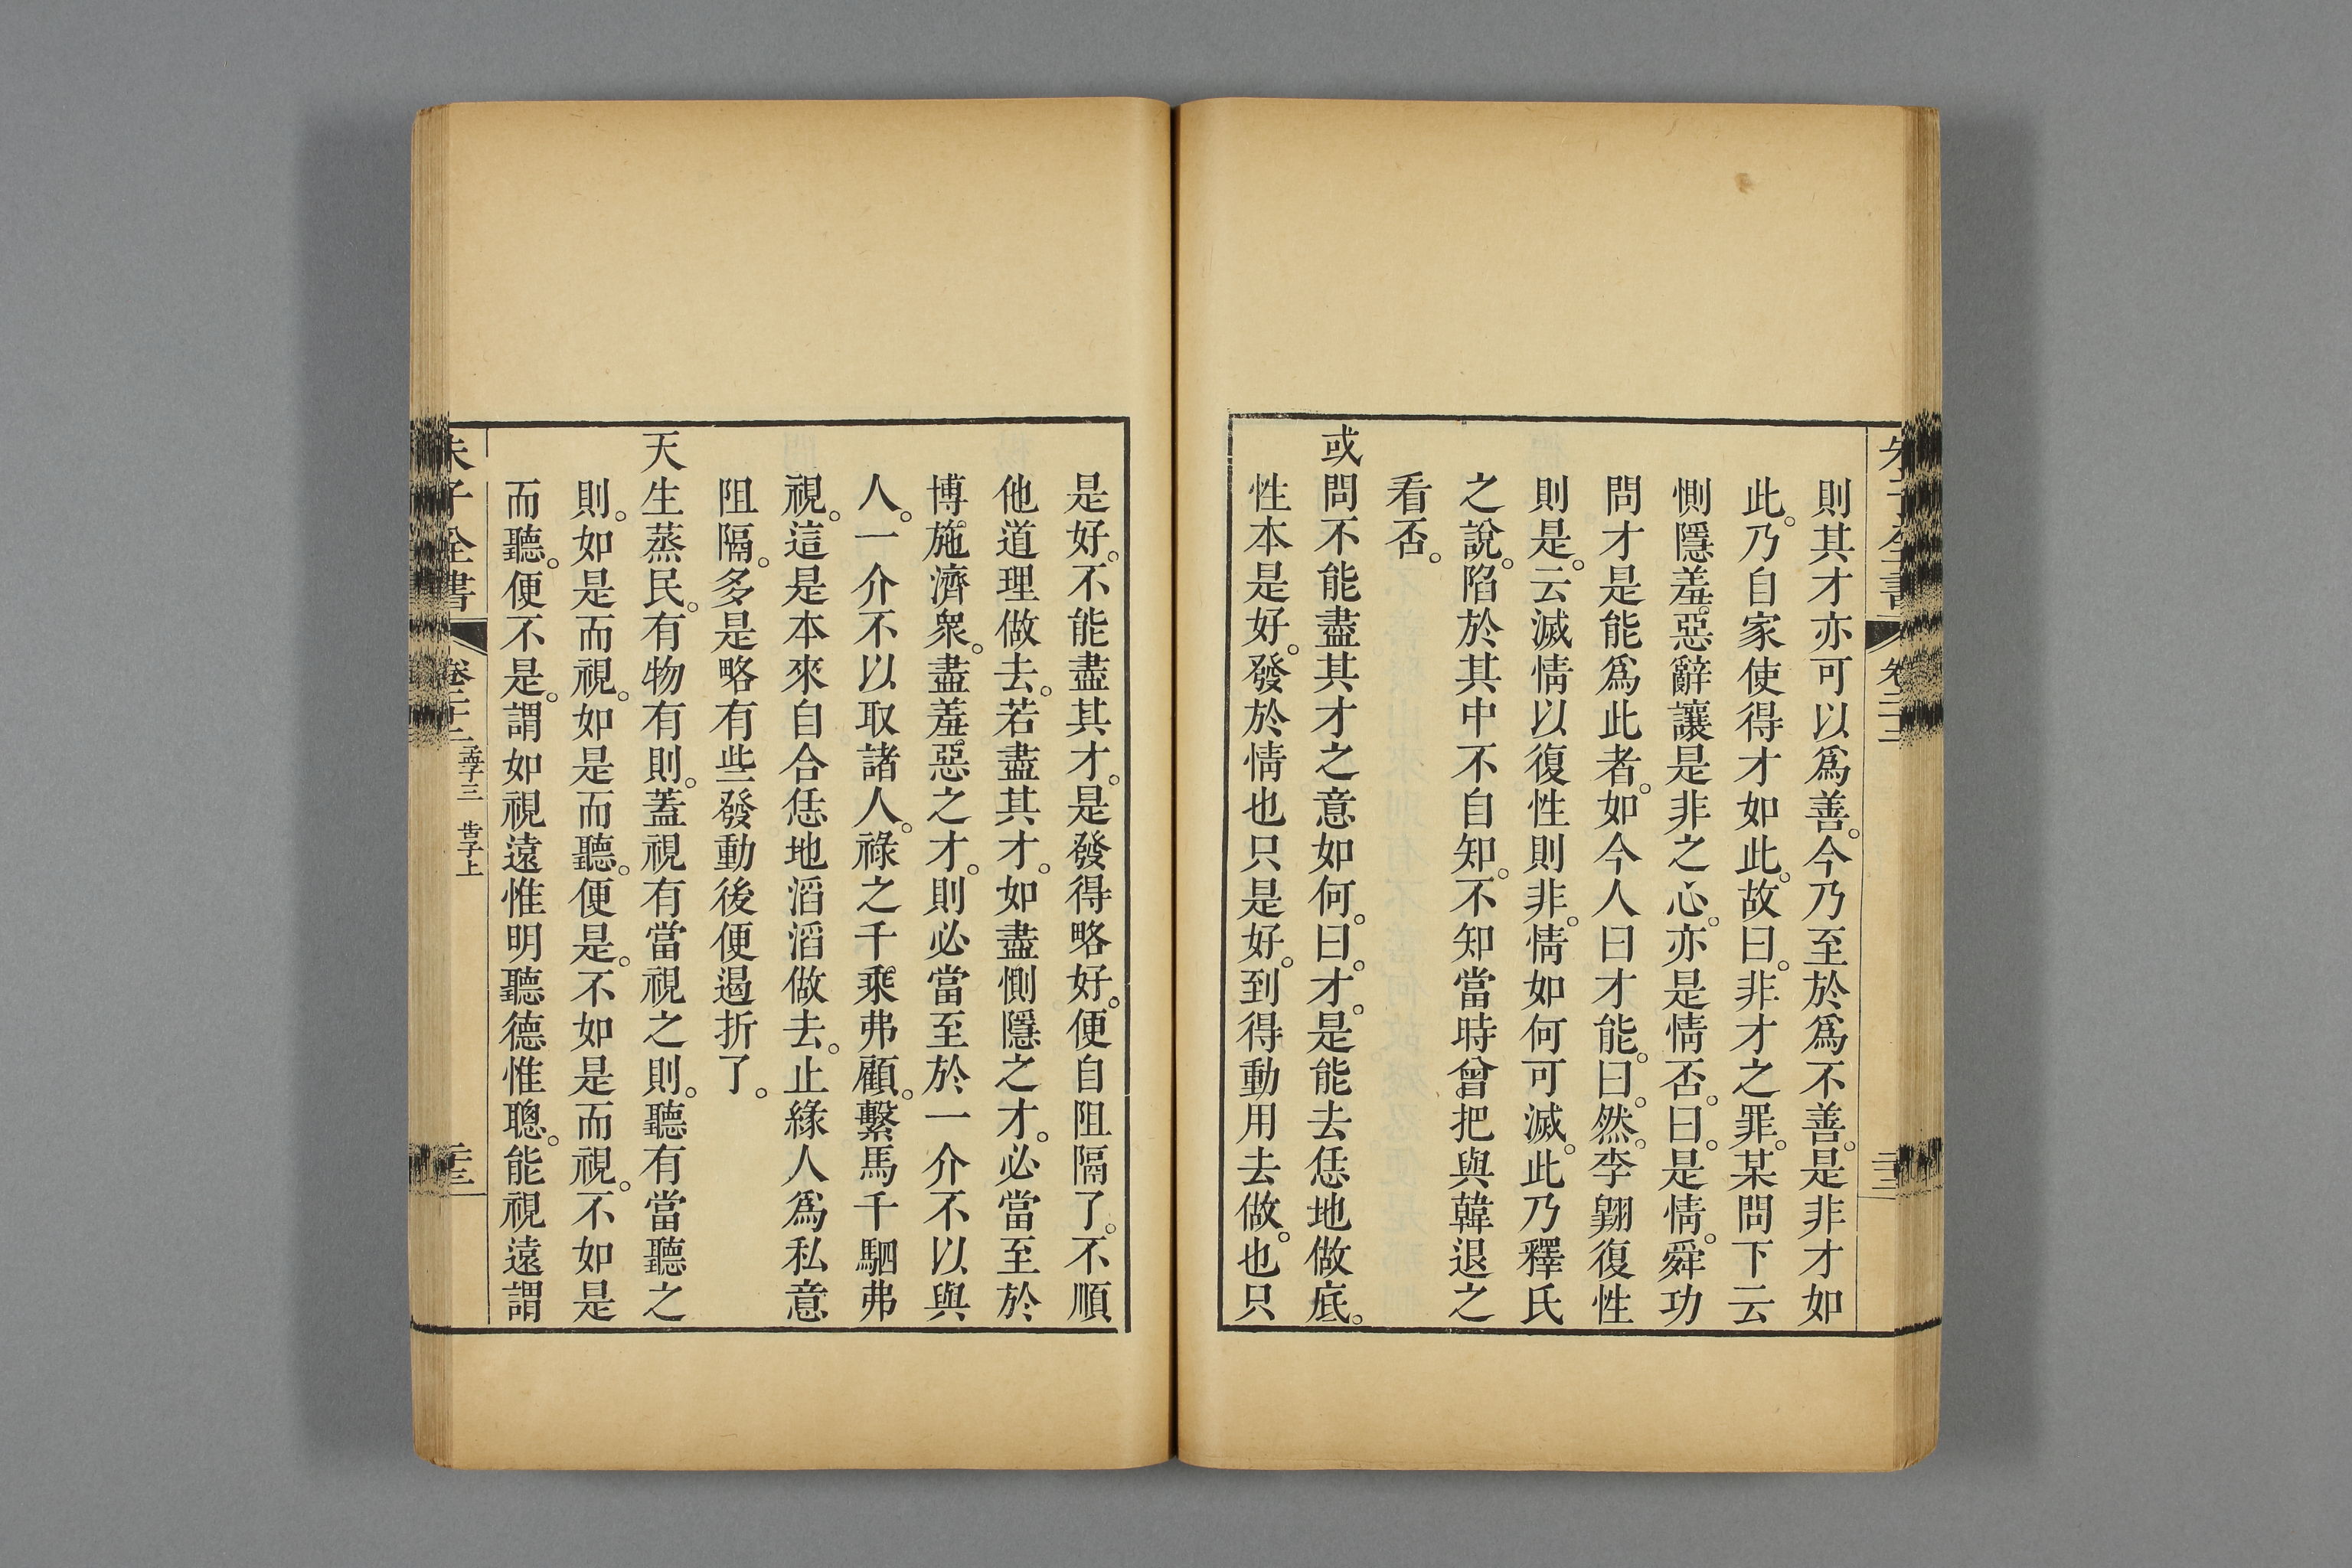 朱子全書 卷二十二
則其才亦可以爲善。今乃至於爲不善。是非才如
此。乃自家使得才如此。故曰。非才之罪。某問下云
惻隱羞。惡辭讓是非之心。亦是情否。曰。是情。舜功
問才是能爲此者。如今人曰才能。曰。然。李翺復性
則是。云滅情以復性則非。情如何可滅。此乃釋氏
之說。陷於其中不自知。不知當時曾把與韓退之
看否。
或問不能盡其才之意如何。曰。才。是能去恁地做底。
性本是好。發於情也只是好。到得動用去做。也只
是好。不能盡其才。是發得略好。便自阻隔了。不順
他道理做去。若盡其才。如盡惻隱之才。必當至於
博施。濟衆。盡羞。惡之才。則必當至於一介不以與
人。一介不以取諸人。祿之千乘弗顧。繫馬千駟弗
視。這是本來自合恁地滔滔做去。止緣人爲私意
阻隔。多是略有些發動後便遏折了。
天生蒸民。有物有則。蓋視有當視之則。聽有當聽之
則。如是而視。如是而聽。便是。不如是而視。不如是
而聽。便不是。謂如視遠惟明聽德惟聰。能視遠謂
朱子全書 卷二十二 孟子三 告子上